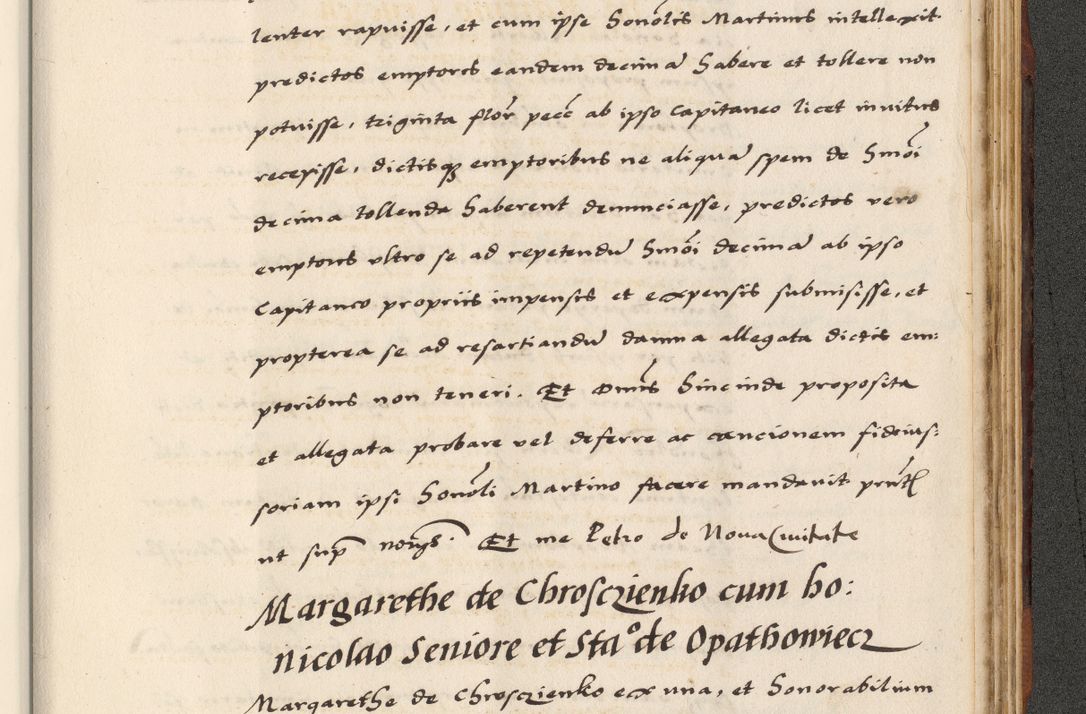 lenter rapuisse, et cum ipse honolis Martinus intellexit
predictos emptores eandem decimā habere et tollere non
potuisse, triginta flor pecc ab ipso Capitaneo licet invitus
recepisse, dictisq emptoribus ne aliquā spem de hmōi
decima tollenda haberent denunciasse, predictos vero
emptores ultro se ad repetendū hmōi decimā ab ipso
Capitaneo propriis impensis et expensis submisisse, et
propterea se ad resartiandū damna allegata dictis em:
ptoribus non teneri. Et omēs hincinde proposita
et allegata probare vel deferre ac caucionem fideius:
soriam ipsi honoli Martino facere mandavit
ut sup Et me Petro de Nova Civitate
Margarethe de Chrosczienko cum ho:
Nicolao Seniore et Sta° de Opathowiecz
Margarethe de Chrosczienko ex una, et honorabilium